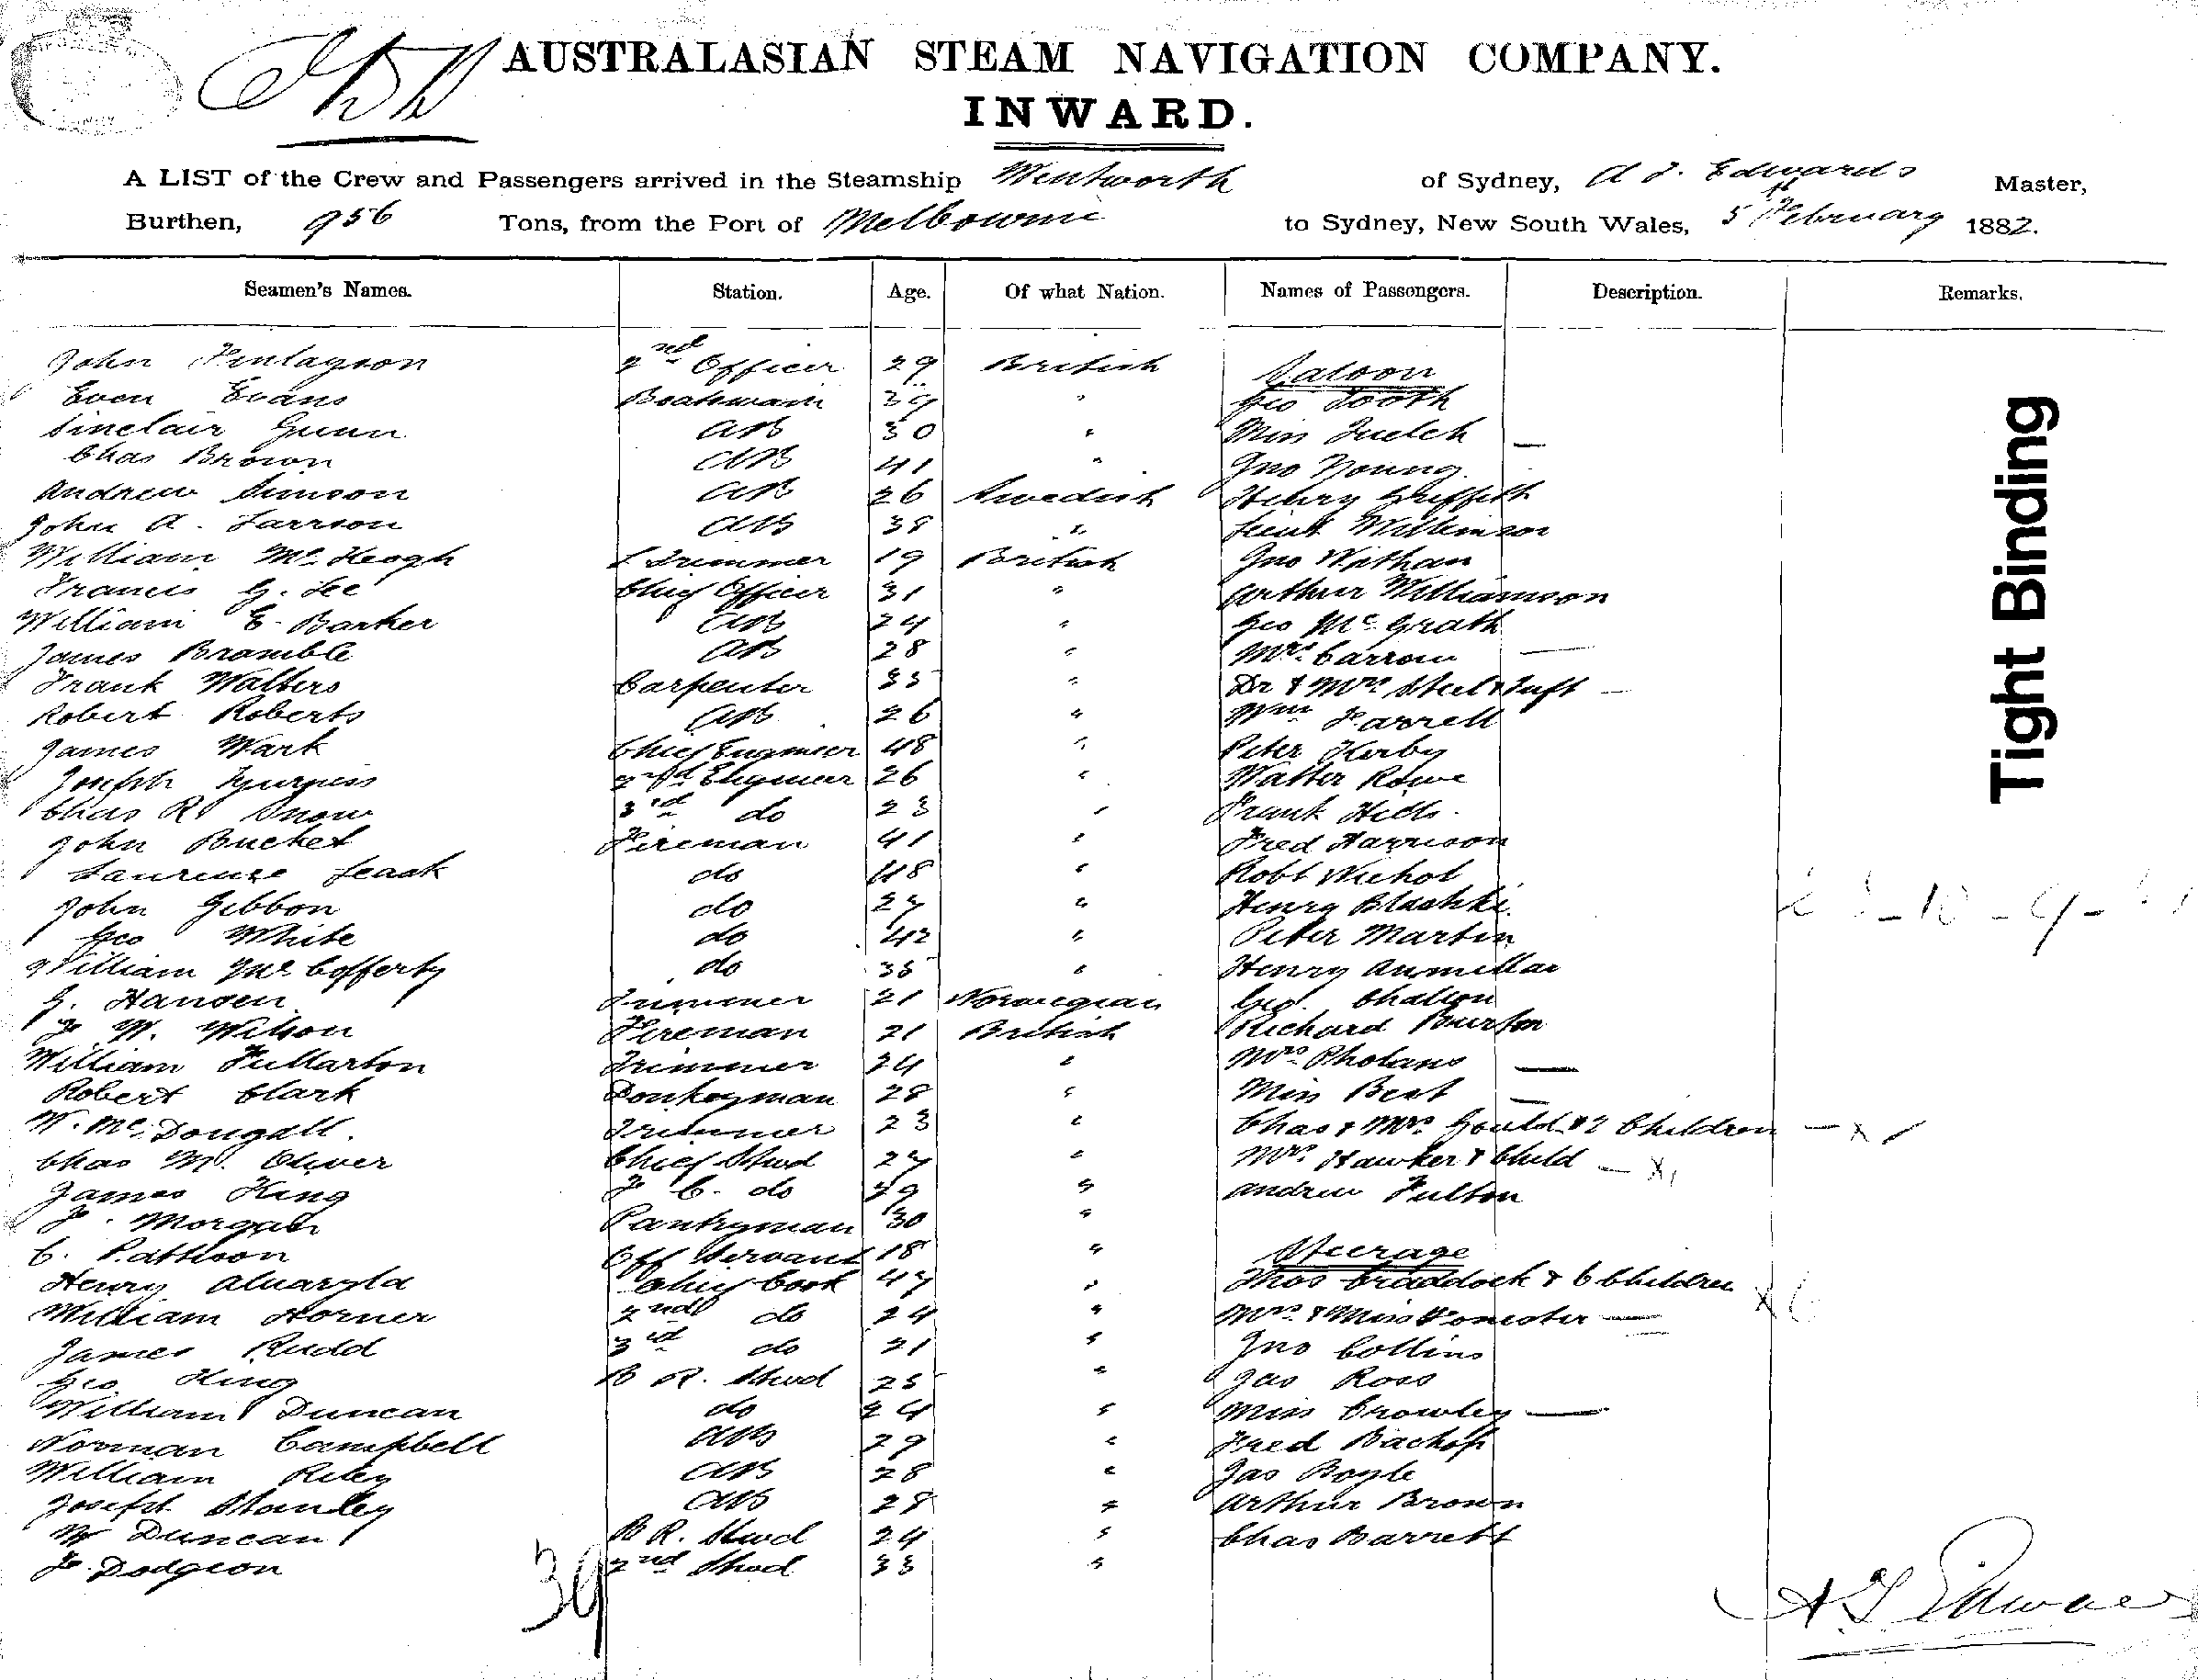 AUSTRALASIAN STEAM NAVIGATION COMPANY.
INWARD.
A LIST of the Crew and Passengers arrived in the Steamship Wentworth of Sydney, A J. Edwards Master,
Burthen, 956 Tons, from the Port of Melbourne to Sydney, New South Wales, 5th February 1882.
Seamen's Names. Station. Age. Of what Nation. Names of Passengers. Description. Remarks.
John Finlayson 2nd Officer 29 British Saloon
Even Evans Boatswain 39 " Geo Tooth
Sinclair Gunn AB 30 " Miss Quelch —
Chas Brown AB 41 " Jno Young
Andrew Simson AB 26 Swedish Henry Griffith
John A. Larrson AB 38 " Lieut Wilkinson
William Mc Keogh Trimmer 19 British Jno Witham
Francis G. Lee Chief Officer 31 " Arthur Williamson
William E. Barker AB 24 " Geo McGrath
James Bramble AB 28 " Mrs. —
Frank Walters Carpenter 35 " Dr & Mrs —
Robert Roberts AB 26 " Wm Farrell
James Wark Chief Engineer 48 " Peter Kerby
Joseph 2nd Engineer 26 " Walter Rowe
Chas R Snow 3rd do 23 " Frank Hills.
John Buchet Fireman 41 " Fred Harrison
Laurence Leask do 48 " Robt Nichol
John Gibbon do 27 " Henry Blashki
Geo White do 42 " Peter Martin
William McCofferty do 35 " Henry
G. Hansen Trimmer 21 Norwegian Geo. Challon
J W. Wilson Fireman 21 British Richard Burton
William Fullarton Trimmer 24 " Mrs —
Robert Clark Donkeyman 28 " Miss Best —
W. McDougall. Trimmer 23 " Chas & Mrs Gould & 2 Children — x
Chas M. Oliver Chief Stwd 27 " Mrs. Hawker & Child — x
James King F C. do 29 " Andrew Fulton
J. Morgan Pantryman 30 "
C. Pattison Off Servant 18 " Steerage
Henry Chief Cook 47 " Thos Craddock & 6 Children x 6
William Horner 2nd do 24 " Mrs & Miss —
James Rudd 3rd do 21 " Jno Collins
Geo King B R. Stwd 25 " Jas Ross
William Duncan do 24 " Miss Crowley —
Norman Campbell AB 29 " Fred Bachop
William Riley AB 28 " Jas Boyle
Joseph Stanley AB 28 " Arthur Brown
W Duncan B R. Stwd 24 " Chas Barrett
J. Dodgson 2nd Stwd 33 "
39
A J Edwards
Tight Binding